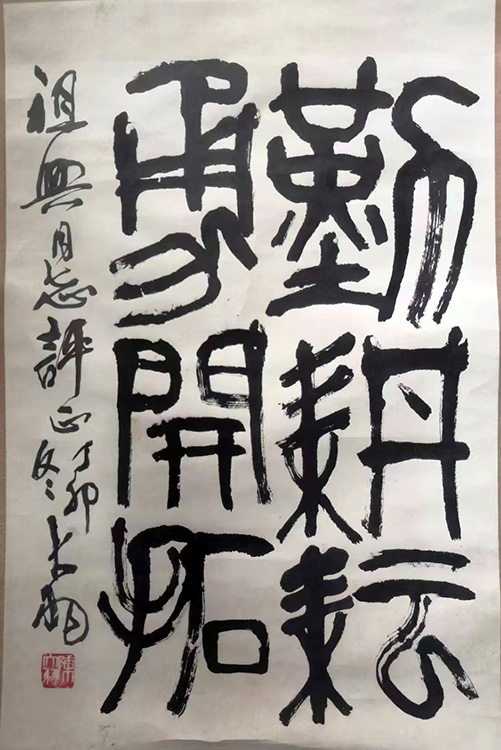 勤耕耘
勇開拓
祖興同志評正
丁卯冬大羽